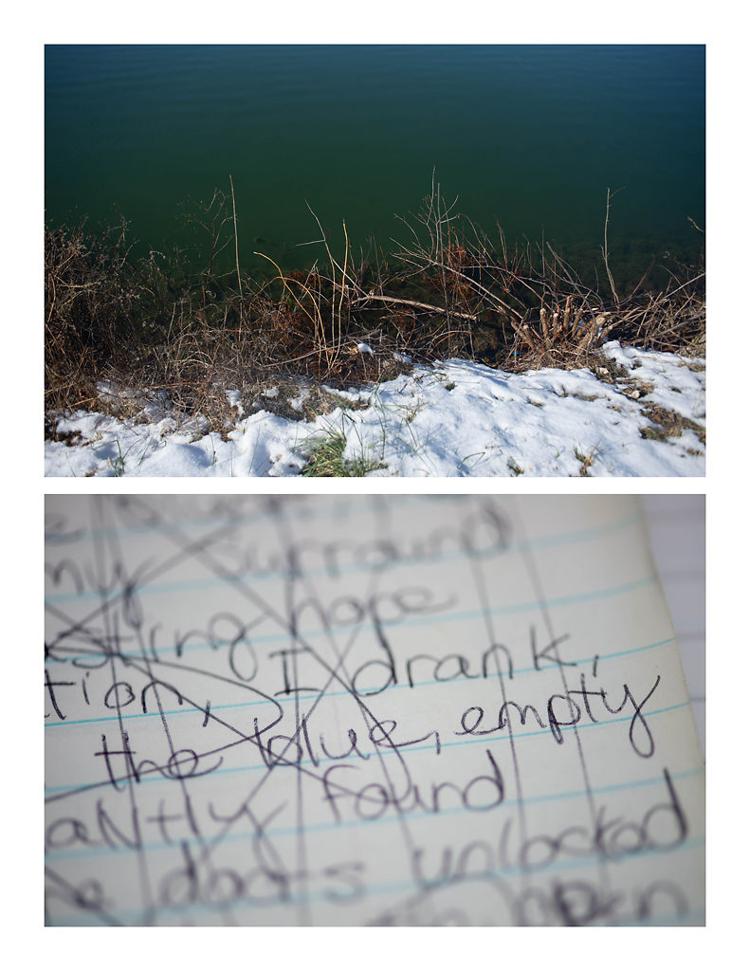 my surround
sting hope
tion, I drank,
the blue, empty
antly found
e doors unlocked
open